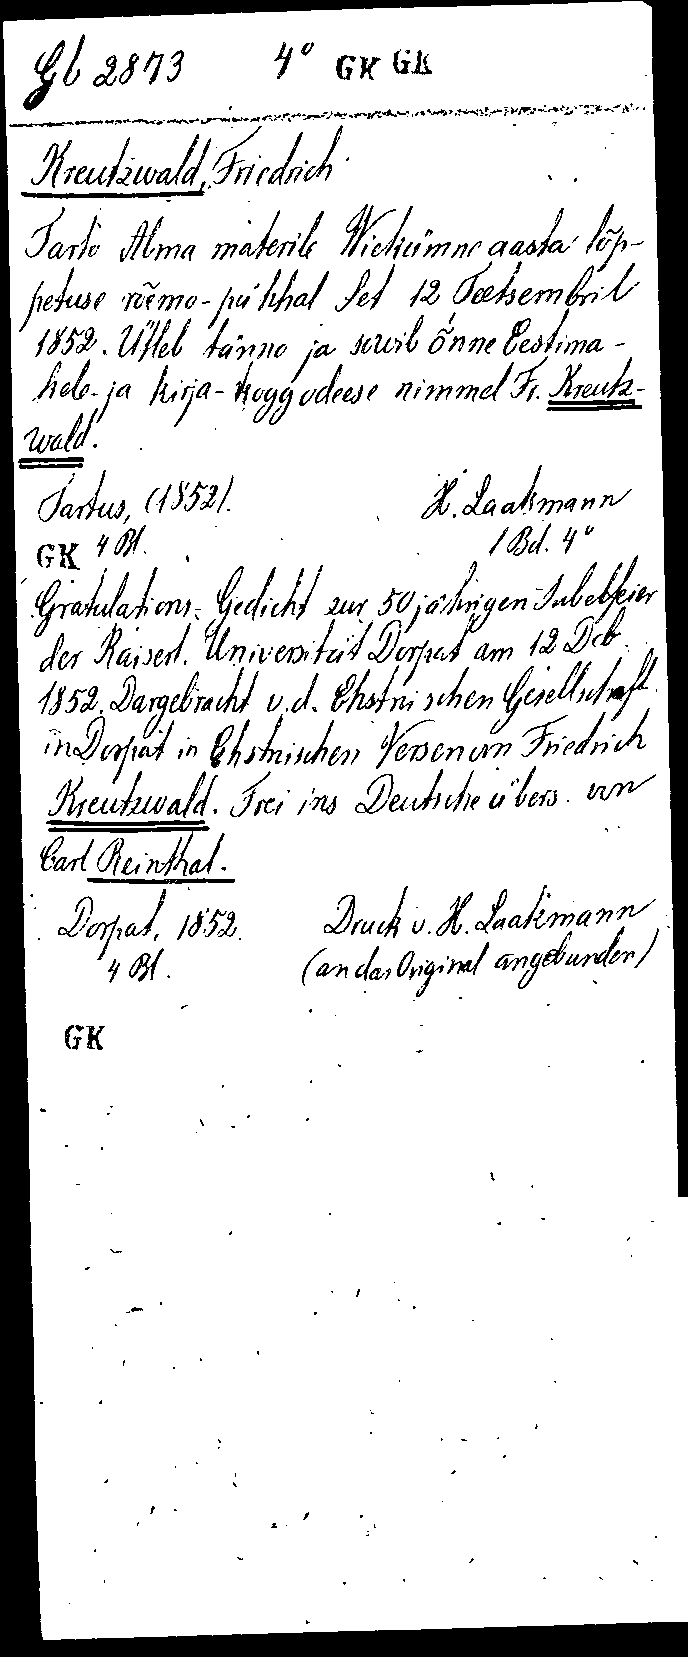 Gb 2873 4° GK GK
Kreutzwald, Friedrich
Tarto Alma materile Wiekümne aasta lõp-
petuse rõemo-pühhal sel 12 Tetsembril
1852. Ütleb tänno ja sowib õnne Eestima-
hele- ja kirja-koggodeese nimmel Fr. Kreutz-
wald.
Tartus, (1852). H. Laakmann
GK 4 Bl. 1 Bd. 4°
Gratulations-Gedicht zur 50 jährigen Jubelfeier
der Kaiserl. Universität Dorpat am 12 Deb.
1852. Dargebracht v.d. Ehstnischen Gesellschaft
in Dorpat in Ehstnischen Versen von Friedrich
Kreutzwald. Frei ins Deutsche übers. von
Carl Reinthal.
Dorpat, 1852. Druck v. H. Laakmann
4 Bl. (an das Original angebunden)
GK